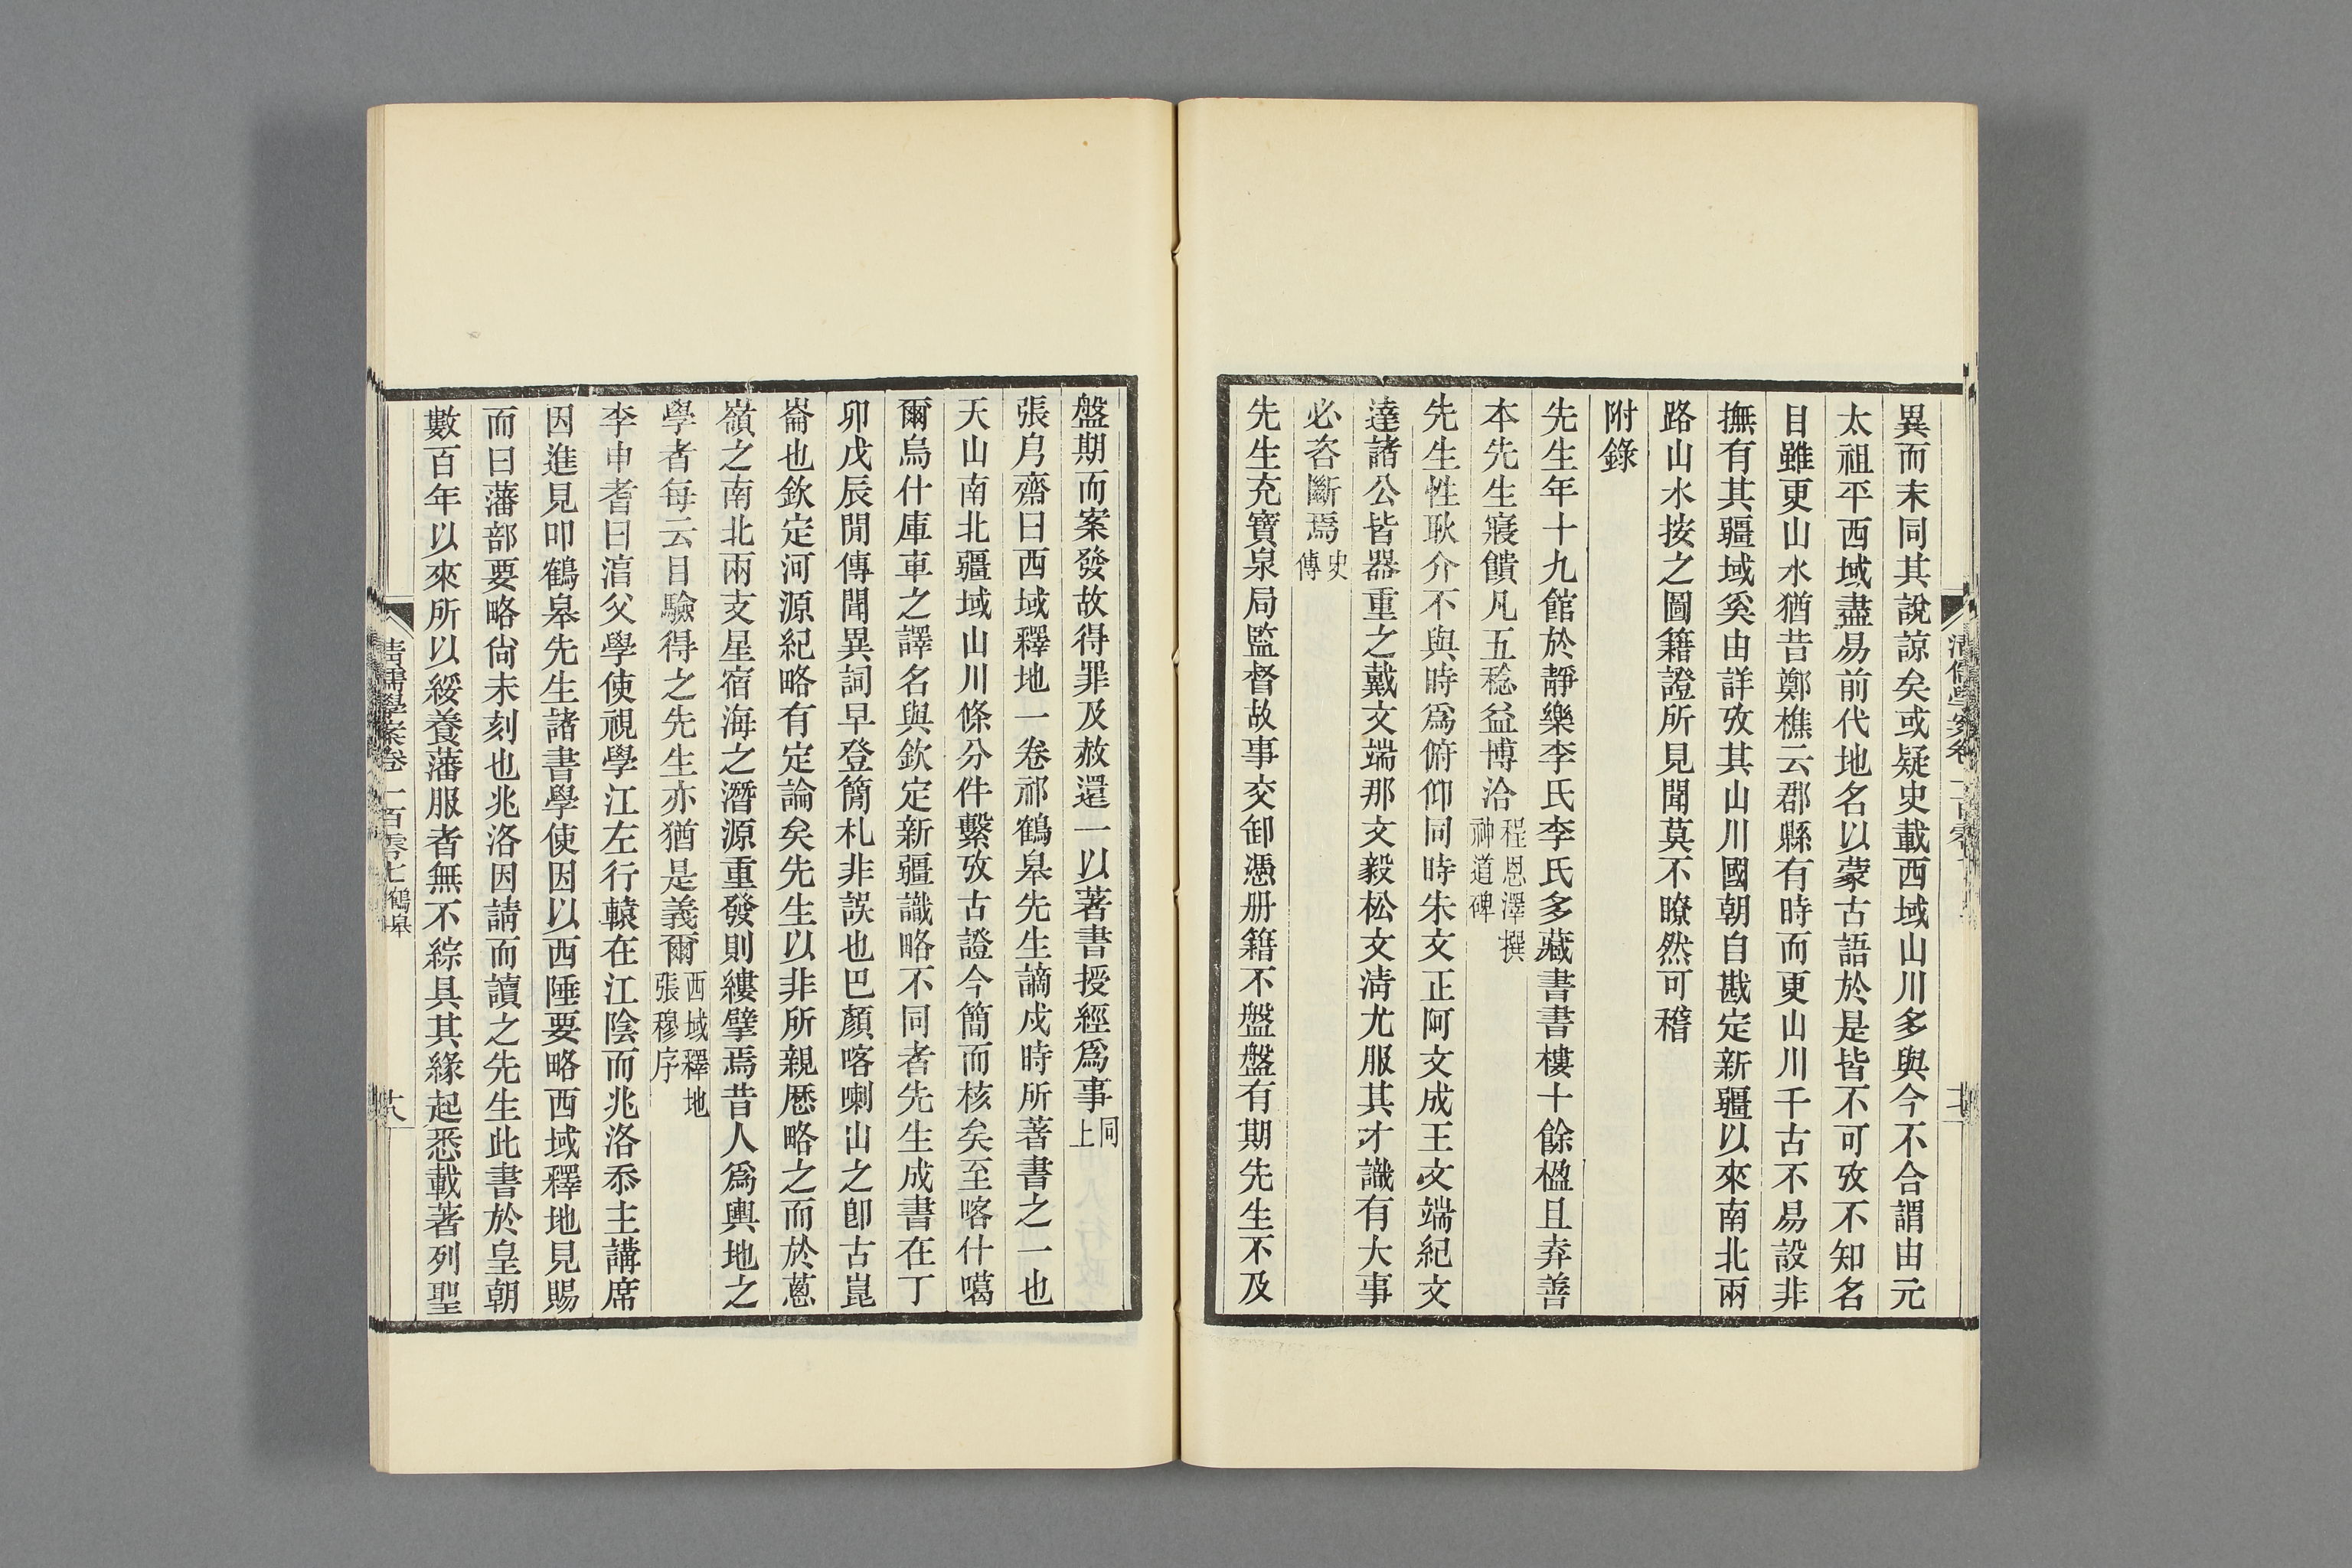 異而末同其說諒矣或疑史載西域山川多與今不合謂由元
太祖平西域盡易前代地名以蒙古語於是皆不可攷不知名
目雖更山水猶昔鄭樵云郡縣有時而更山川千古不易設非
撫有其疆域奚由詳攷其山川國朝自戡定新疆以來南北兩
路山水按之圖籍證所見聞莫不瞭然可稽
附錄
先生年十九館於靜樂李氏李氏多藏書書樓十餘楹且弆善
本先生寢饋凡五稔益博洽程恩澤撰神道碑
先生性耿介不與時爲俯仰同時朱文正阿文成王文端紀文
達諸公皆器重之戴文端那文毅松文清尤服其才識有大事
必咨斷焉史傳
先生充寶泉局監督故事交卸憑册籍不盤盤有期先生不及
盤期而案發故得罪及赦還一以著書授經爲事同上
張㐆齋曰西域釋地一卷祁鶴皋先生謫戍時所著書之一也
天山南北疆域山川條分件繫攷古證今簡而核矣至喀什噶
爾烏什庫車之譯名與欽定新疆識略不同者先生成書在丁
卯戊辰閒傳聞異詞早登簡札非誤也巴顏喀喇山之卽古崑
崙也欽定河源紀略有定論矣先生以非所親歷略之而於蔥
嶺之南北兩支星宿海之潛源重發則縷擘焉昔人爲輿地之
學者每云目驗得之先生亦猶是義爾西域釋地張穆序
李申耆曰淯父學使視學江左行轅在江陰而兆洛忝主講席
因進見叩鶴皋先生諸書學使因以西陲要略西域釋地見賜
而曰藩部要略尙未刻也兆洛因請而讀之先生此書於皇朝
數百年以來所以綏養藩服者無不綜具其緣起悉載著列聖
清儒學案卷一百零七鶴皋